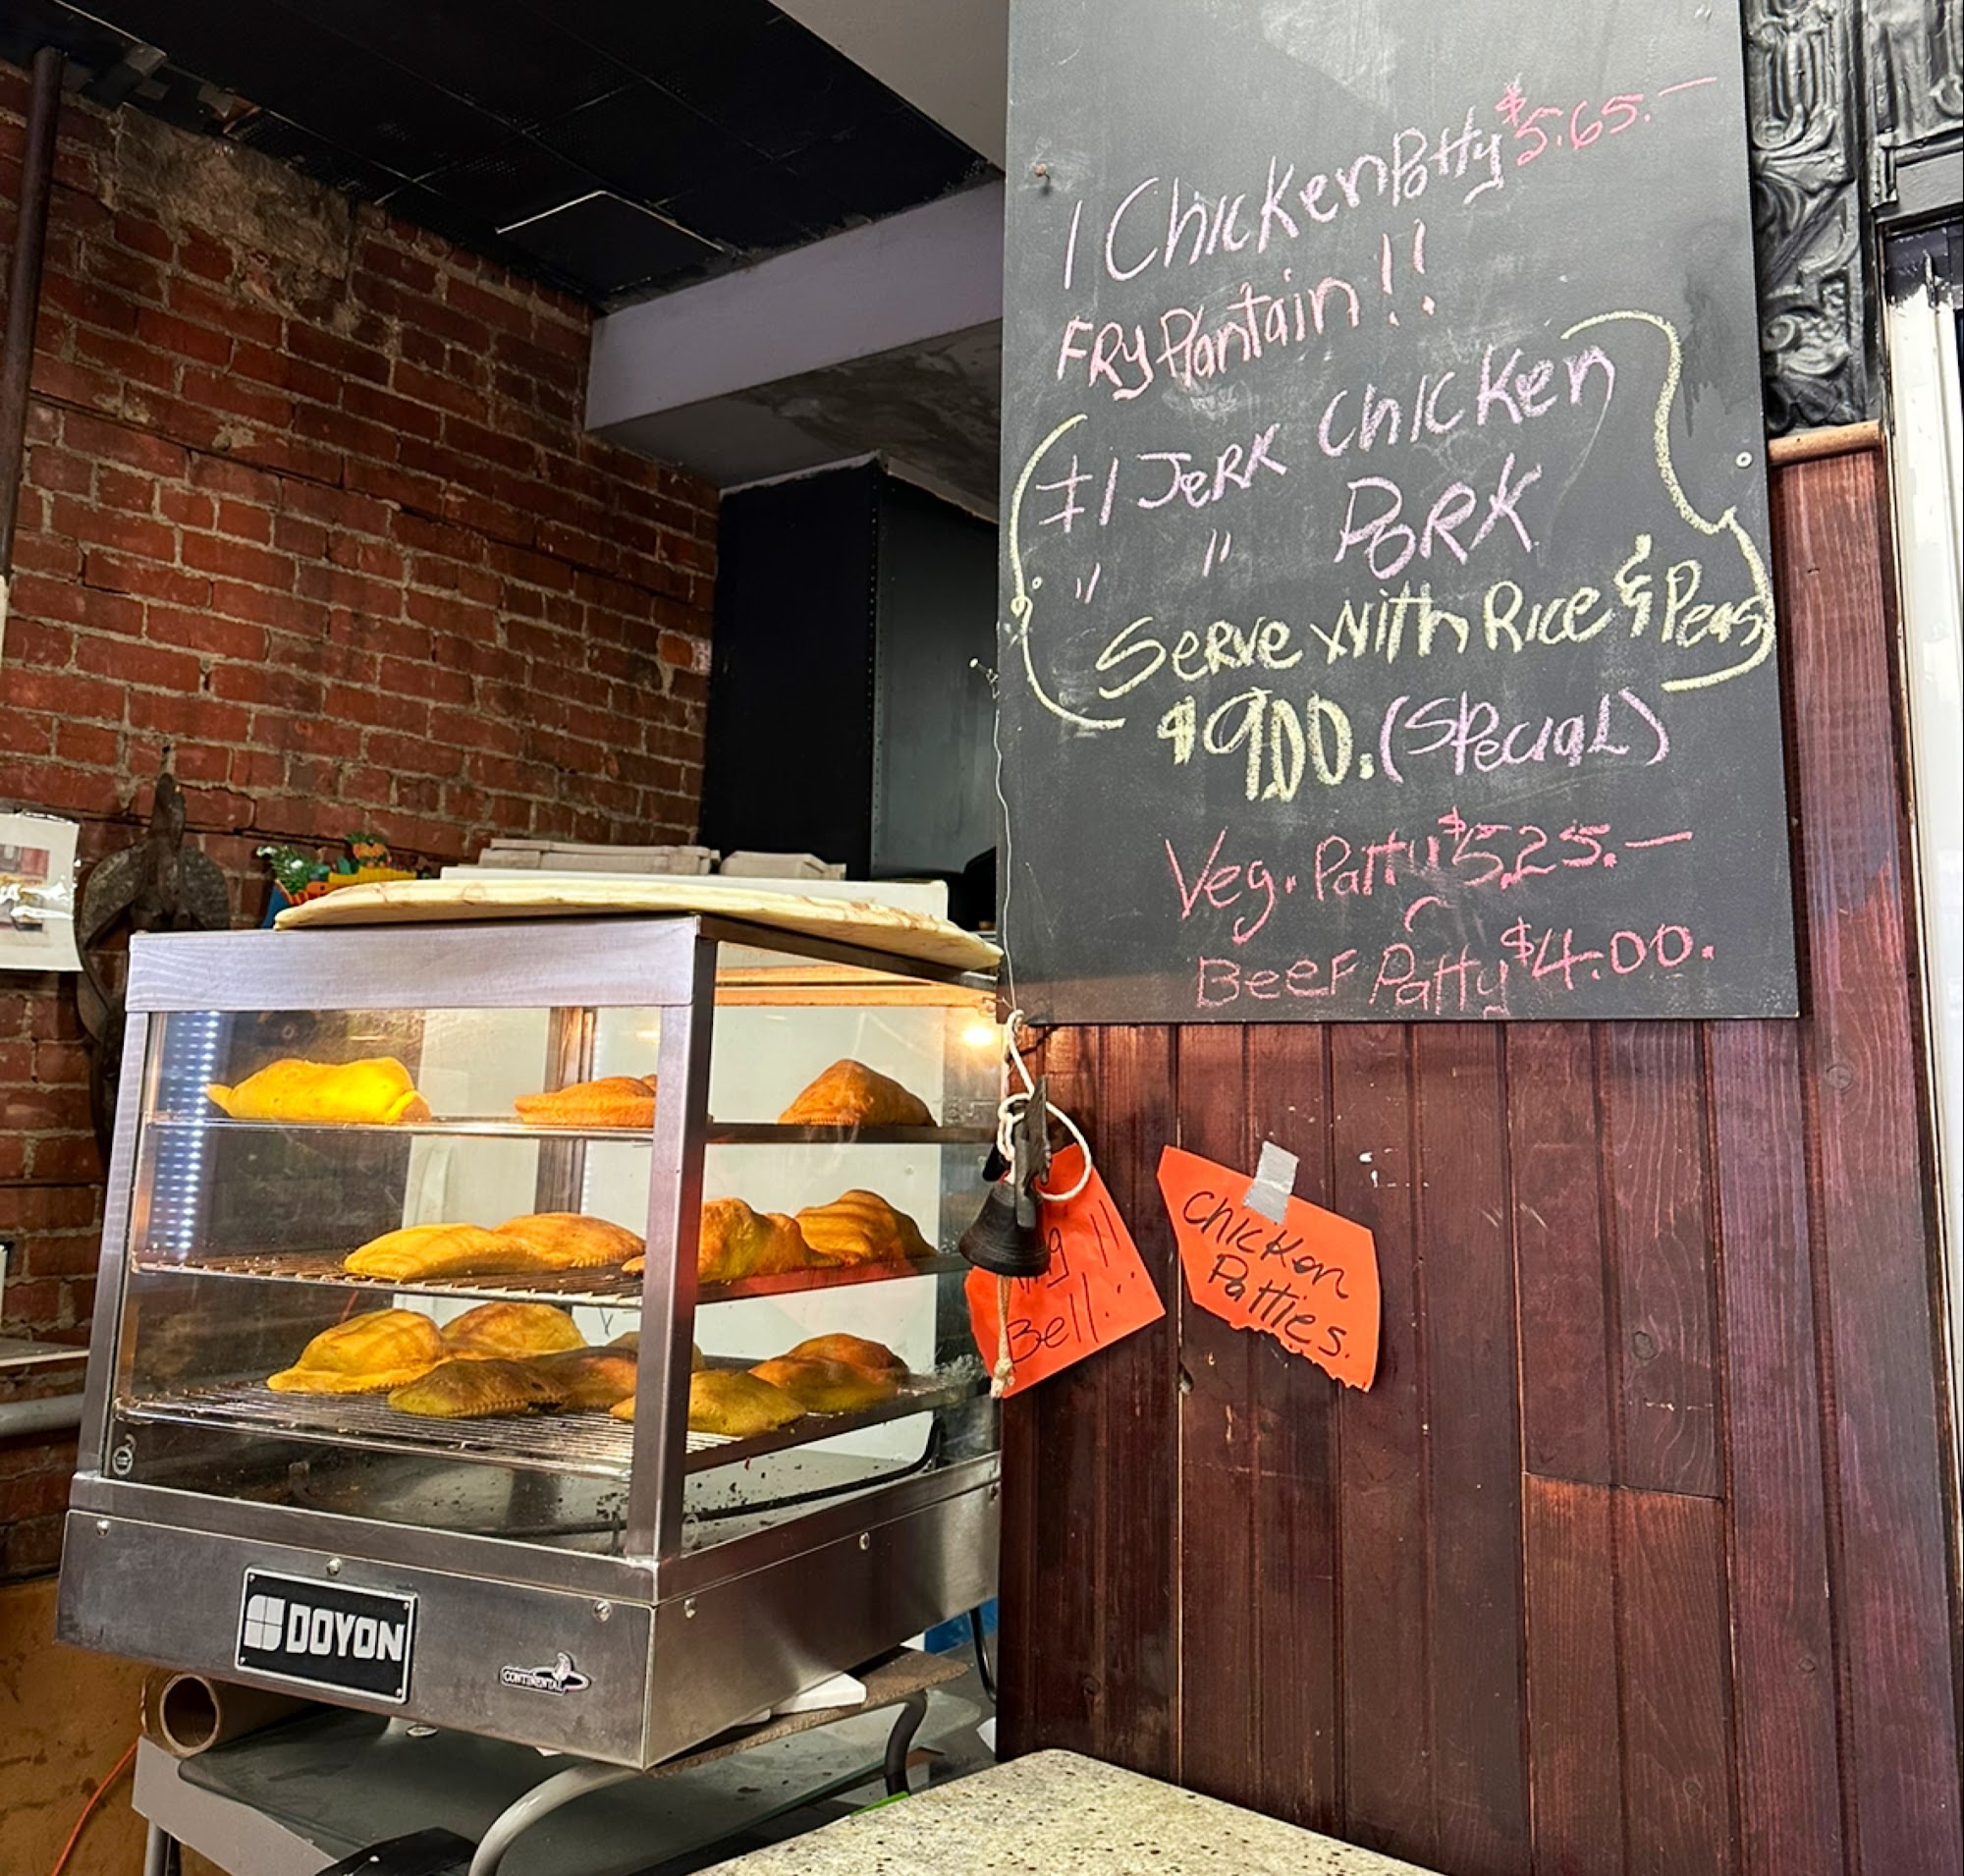 1 Chicken Patty $5.65.—
FRY Plantain!!
#1 JERK CHICKEN
" " PORK
SERVE WITH RICE & Peas
$9.00. (SPecial)
Veg. Patty $5.25.—
BEEF Patty $4.00.
Bell!!
Chicken
Patties.
DOYON
CONTINENTAL